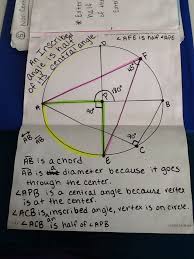 * Enter
half
of the
∠AFE is half ∠APE
An Inscribed
angle is half
of its central angle
D
F
P
180°
90°
A
B
90°
45°
C
E
AB AB
AB is a chord.
AB is diameter because it goes
through the center.
∠APB is a central angle because vertex
is at the center.
∠ACB is an inscribed angle, vertex is on circle.
∠ACB is half of ∠APB